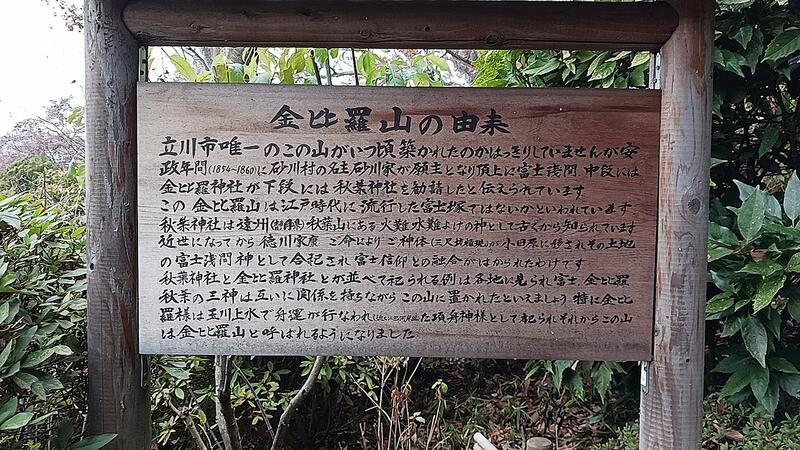 金比羅山の由来
立川市唯一のこの山がいつ頃築かれたのかはっきりしていませんが安
政年間(1854~1860)に砂川村の名主砂川家が願主となり頂上に富士浅間、中段には
金比羅神社が下段には秋葉神社を勧請したと伝えられています
この金比羅山は江戸時代に流行した富士塚ではないかといわれています
秋葉神社は遠州(静岡県)秋葉山にある火難水難よけの神として古くから知られています
近世になってから徳川家康ご命によりご神体(三尺坊権現)が小田原に移されその土地
の富士浅間神として合祀され富士信仰との融合がはかられたわけです
秋葉神社と金比羅神社とが並べて祀られる例は各地に見られ富士、金比羅
秋葉の三神は互いに関係を持ちながらこの山に置かれたといえましょう 特に金比
羅様は玉川上水で舟運が行なわれ た頃舟神様として祀られそれからこの山
は金比羅山と呼ばれるようになりました